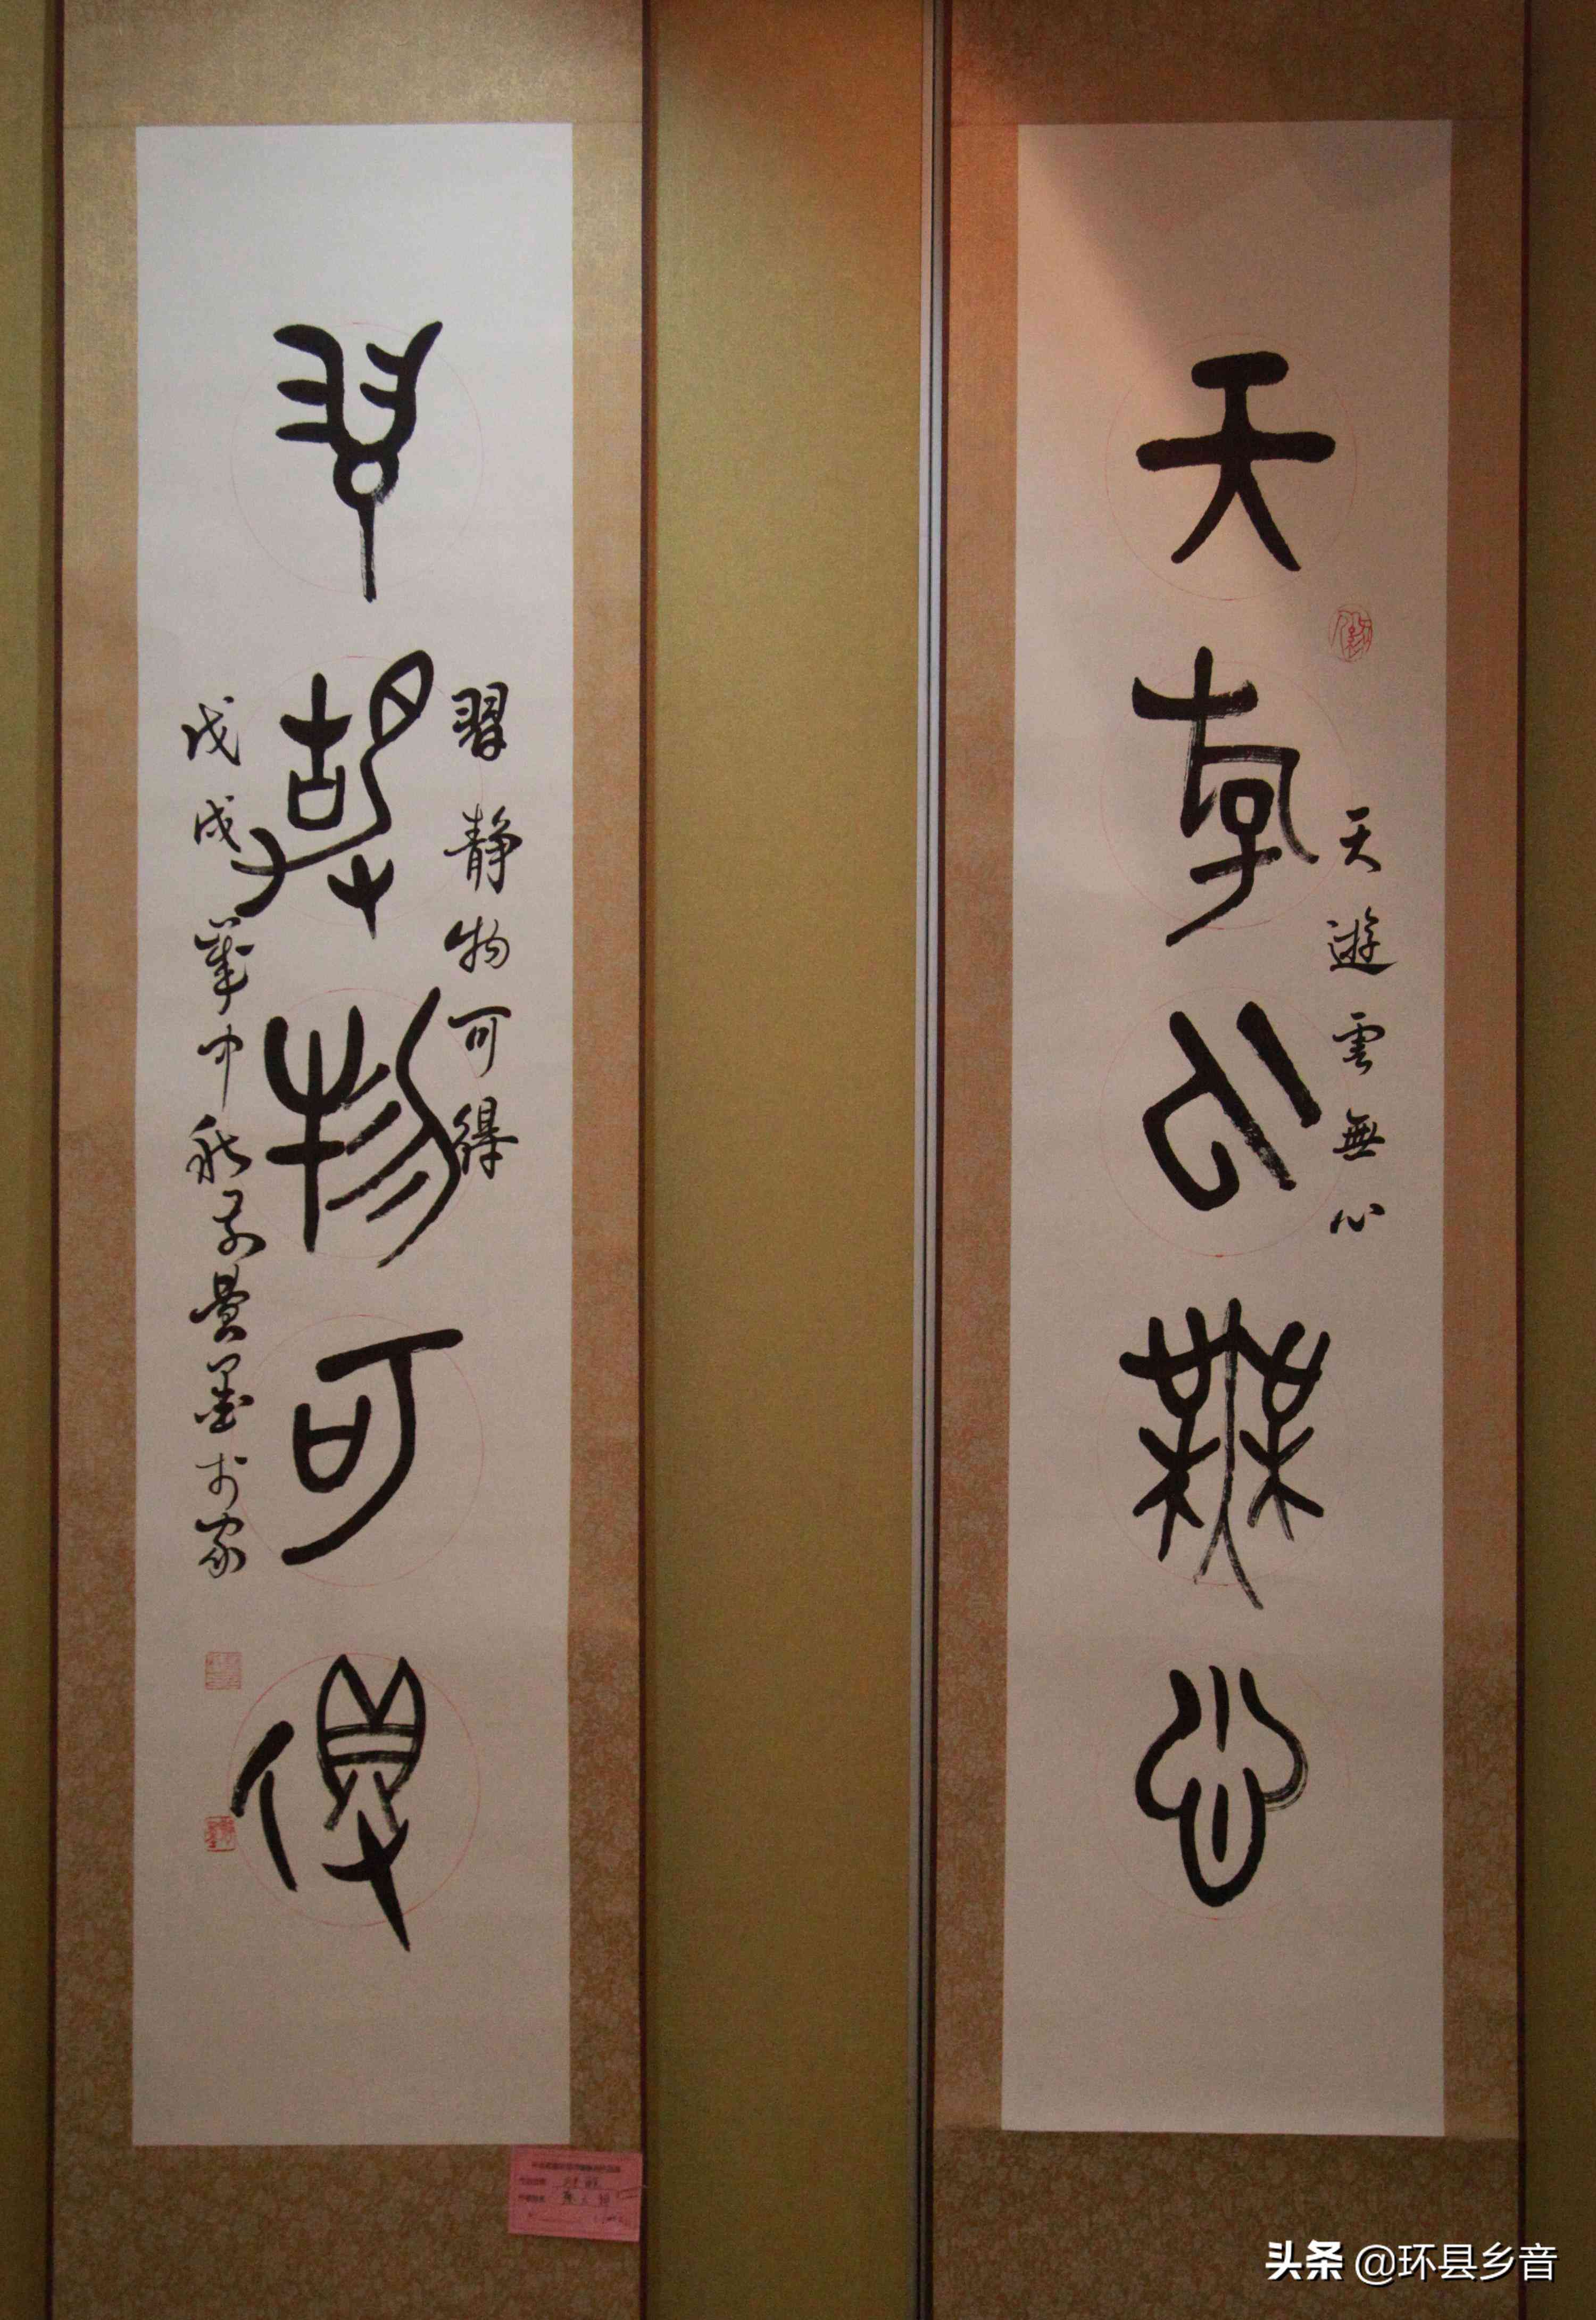 天斿云無心
天遊雲無心
習靜物可得
習静物可得
戊戌中秋墨於家
头条 @环县乡音